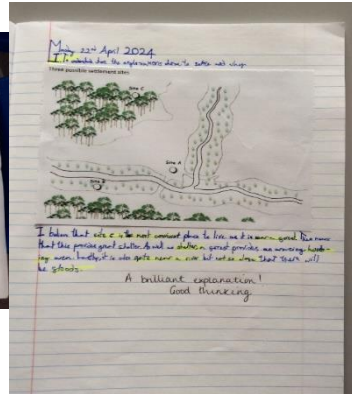 Monday 22nd April 2024
Three possible settlement sites
Site C
Site A
Site B
I believe that site C is the most convenient place to live as it is near a forest. This means
that this provides great shelter. As well as shelter, a forest provides an amazing
area. Lastly, it is also quite near a river but not so close that there will
be floods.
A brilliant explanation!
Good thinking.